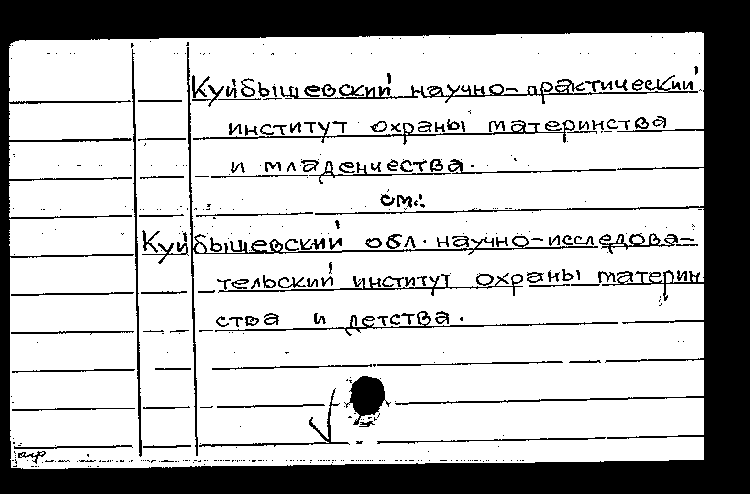 Куйбышевский научно-практический
институт охраны материнства
и младенчества.
см.:
Куйбышевский обл. научно-исследова-
тельский институт охраны материн
ства и детства.